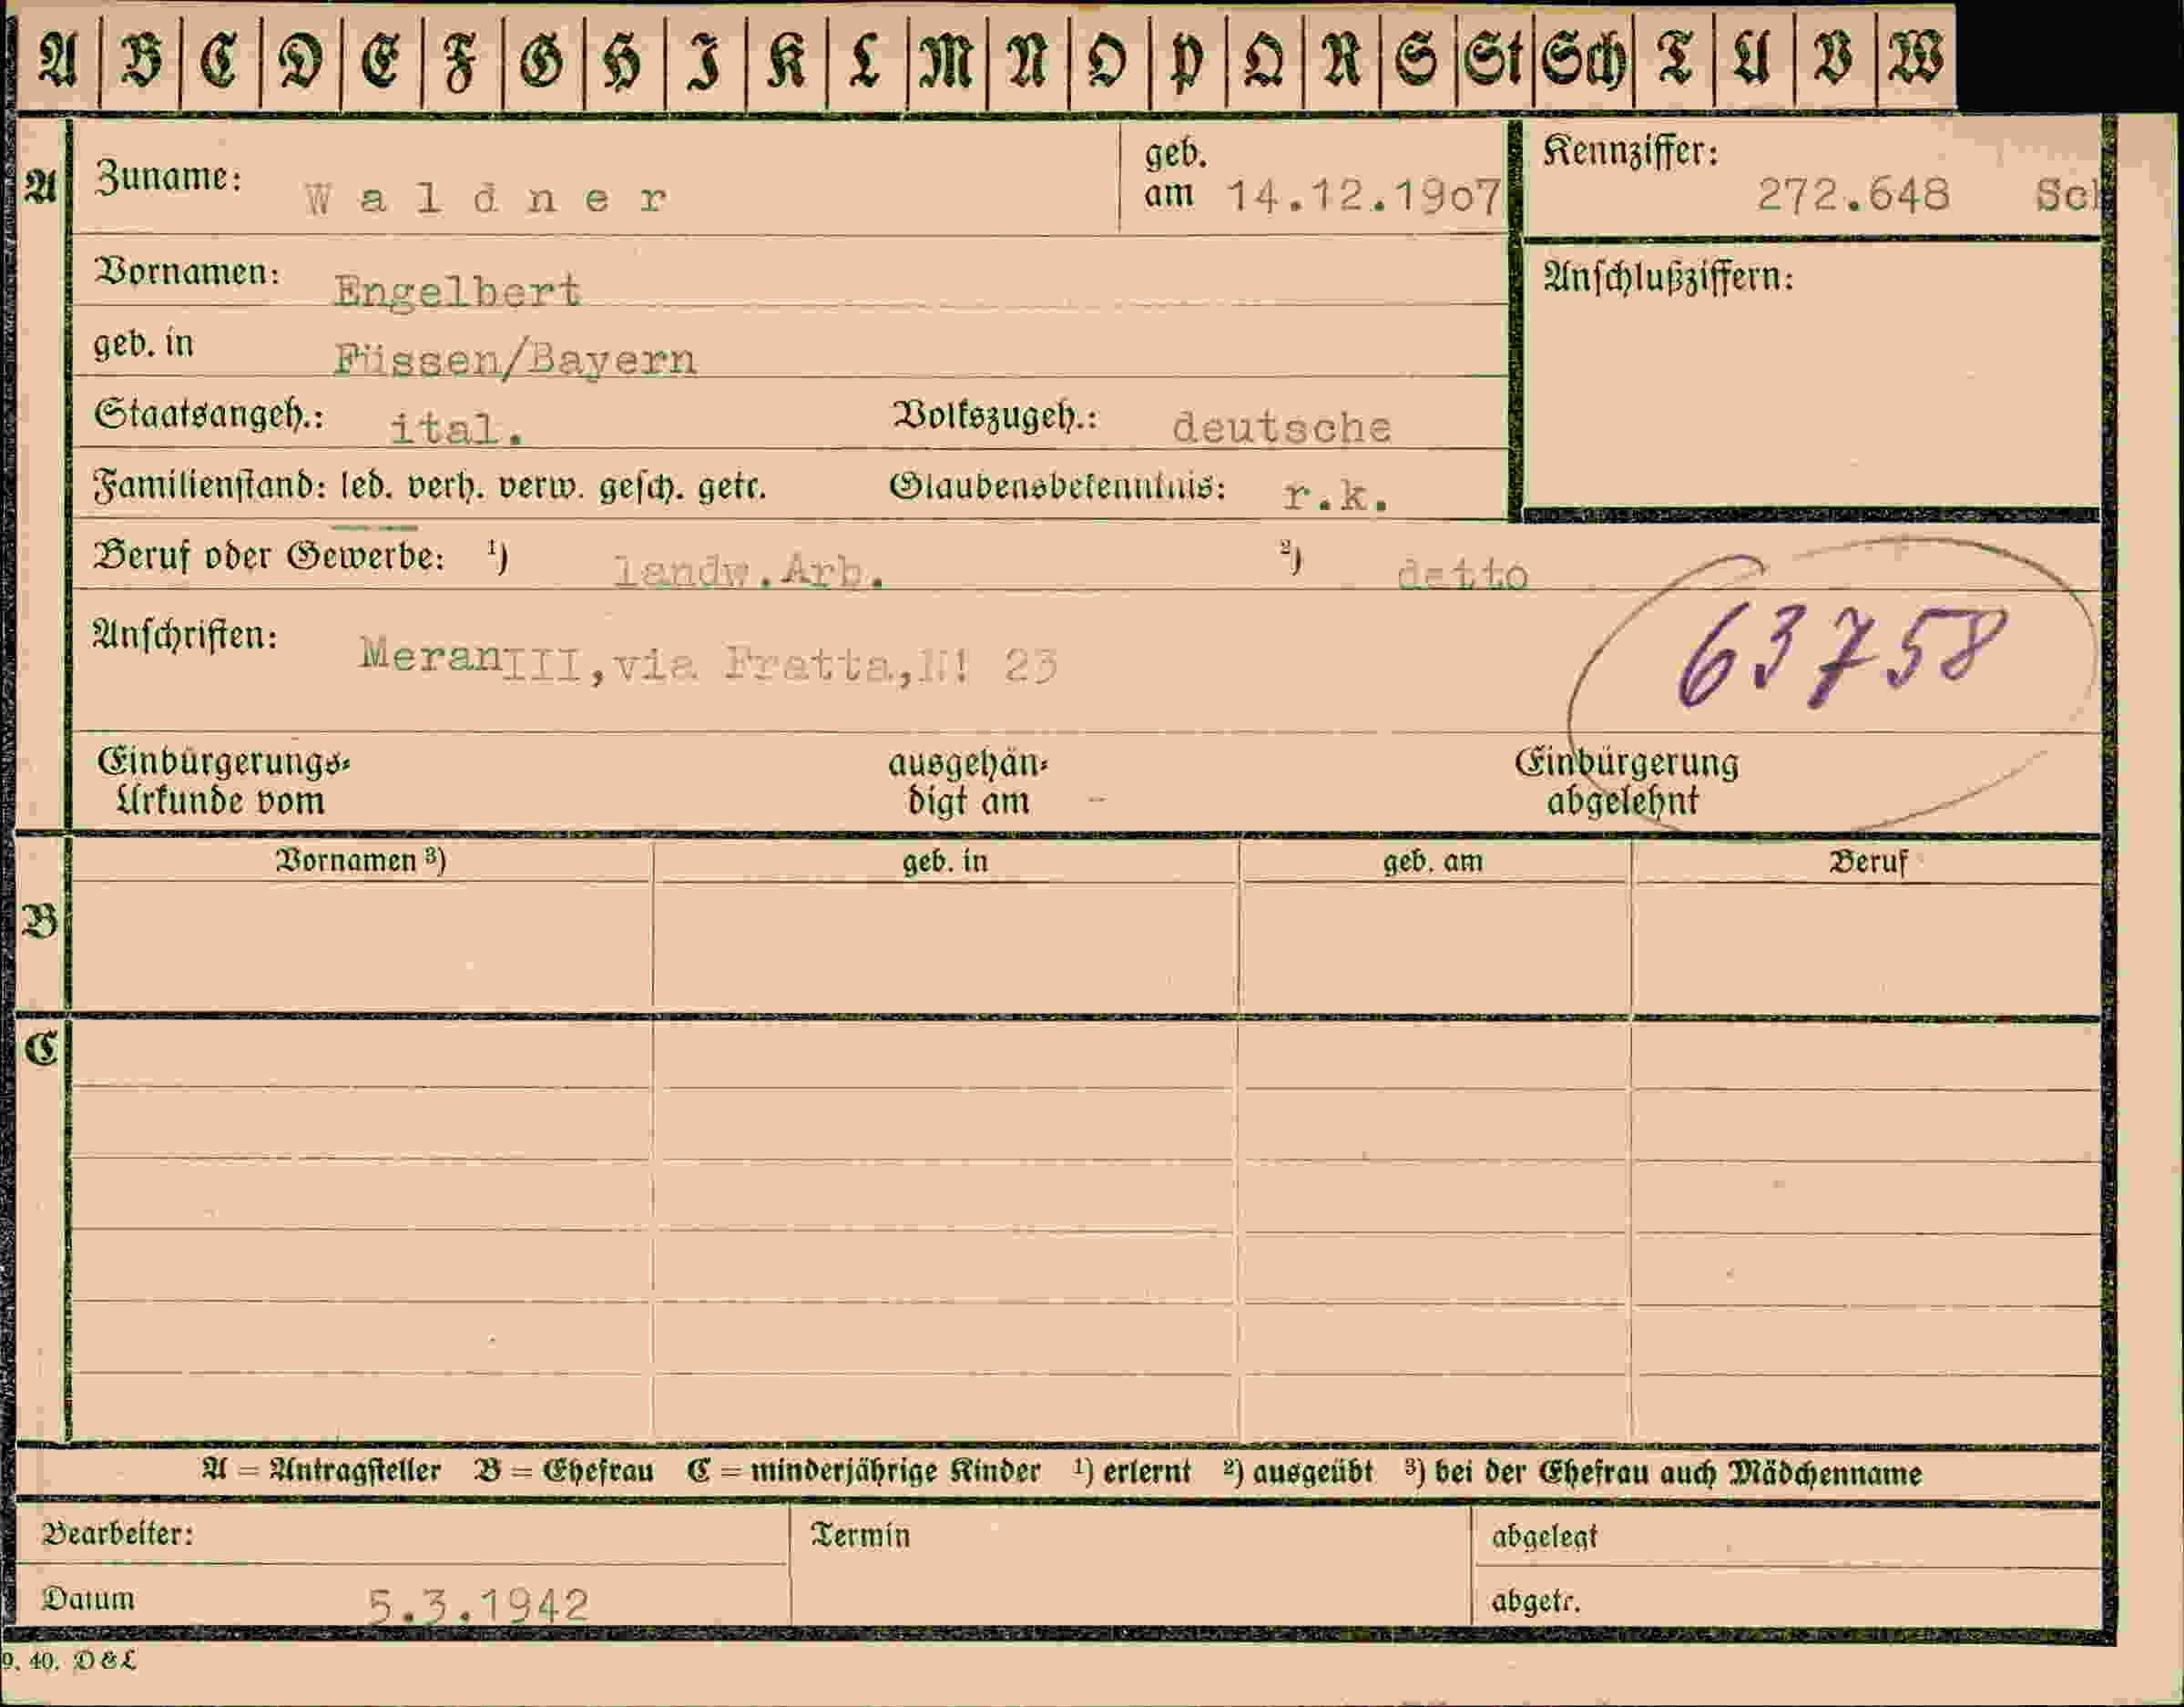 A B C D E F G H I K L M N O P Q R S St Sch T U V W
A Zuname: Waldner geb. am 14.12.1907 Kennziffer: 272.648 Sch
Vornamen: Engelbert Anschlußziffern:
geb. in Füssen/Bayern
Staatsangeh.: ital. Volkszugeh.: deutsche
Familienstand: led. verh. verw. gesch. getr. Glaubensbekenntnis: r.k.
Beruf oder Gewerbe: ¹) landw.Arb. ²) detto
63758
Anschriften: MeranIII,via Fratta,N! 23
Einbürgerungs-Urkunde vom ausgehändigt am - Einbürgerung abgelehnt
Vornamen ³) geb. in geb. am Beruf
B
C
A = Antragsteller B = Ehefrau C = minderjährige Kinder ¹) erlernt ²) ausgeübt ³) bei der Ehefrau auch Mädchenname
Bearbeiter: Termin abgelegt
Datum 5.3.1942 abgetr.
9. 40. D&L